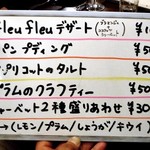 fleu fleuデザート
パンプディング ¥50
アプリコットのタルト ¥50
プラムのクラフティー ¥50
シャーベット2種盛りあわせ ¥30
→(レモン/プラム/しょうが/キウイ)